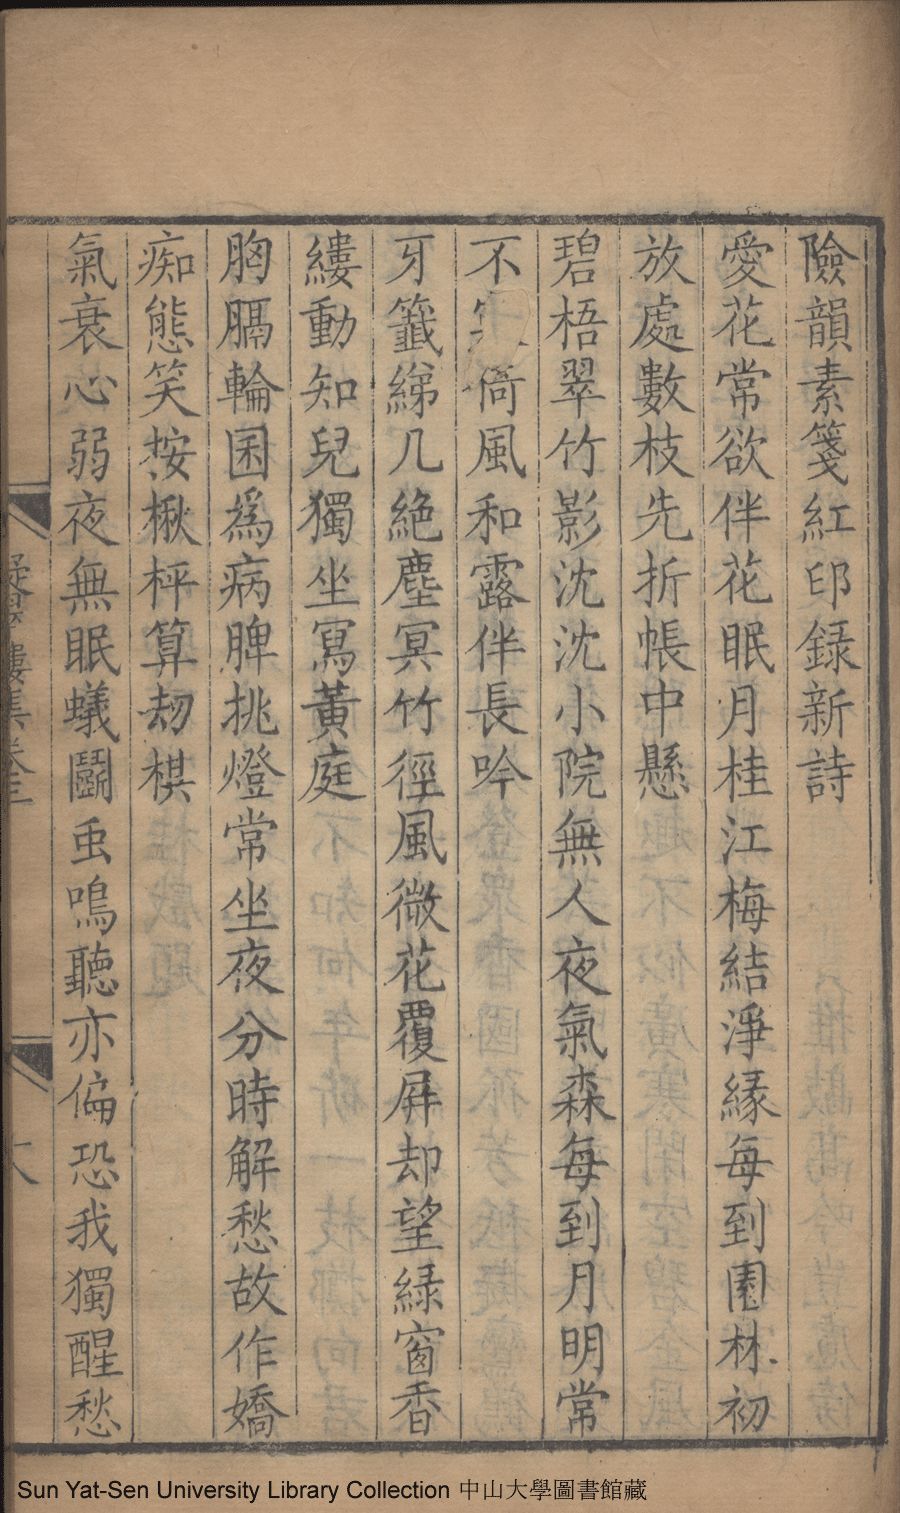 險韻素箋紅印録新詩
愛花常欲伴花眠月桂江梅結淨緣每到園林初
放處數枝先折帳中懸
碧梧翠竹影沈沈小院無人夜氣森每到月明常
不倚風和露伴長吟
牙籤綈几絶塵冥竹徑風微花覆屏却望緑窗香
縷動知兒獨坐寫黃庭
胸膈輪囷爲病脾挑燈常坐夜分時解愁故作嬌
痴態笑按楸枰算劫棋
氣衰心弱夜無眠蟻鬬䖝鳴聽亦偏恐我獨醒愁
凝翠樓集卷三
大
Sun Yat-Sen University Library Collection 中山大學圖書館藏